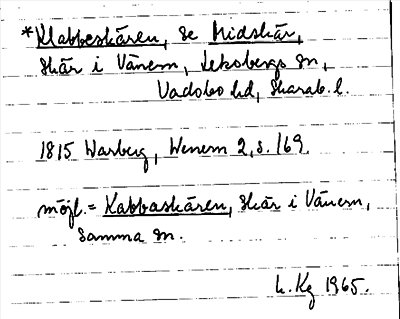 *Klabbeskären, se Midskär,
Skär i Vänern, Leksbergs sn,
Vadsbo hd, Skarab. l.
1815 Warberg, Wenern 2, s. 169.
möjl. = Kabbaskären, skär i Vänern,
samma sn.
L. Kg 1965.